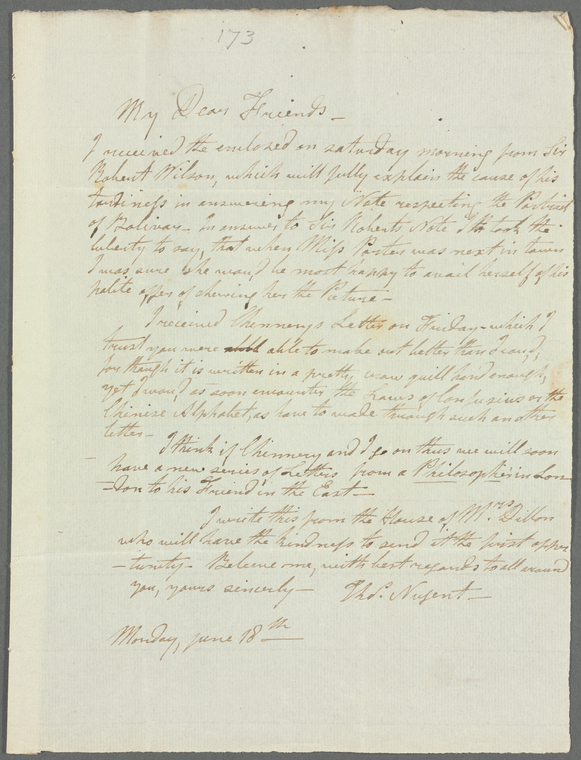 173
My Dear Friends—
I received the enclosed on saturday morning from Sir
Robert Wilson, which will fully explain the cause of his
tardiness in answering my Note respecting the Portrait
of Bolivar— In answer to Sir Roberts Note I took the
liberty to say, that when Miss Porter was next in town
I was sure she wou'd be most happy to avail herself of his
polite offer of shewing her the Picture—
I received Chinnerys Letter on Friday—which I
trust you were able to make out better than I cou'd,
for though it is written in a pretty, crow quill hand enough,
yet I wou'd as soon encounter the Laws of Confusius or the
Chinese Alphabet, as have to wade through such another
letter—
I think if Chinnery and I go on thus we will soon
have a new series of Letters from a Philosopher in Lon-
-don to his Friend in the East—
I write this from the House of Mrs. Dillon
who will have the kindness to send it the first oppor
-tunity— Believe me, with best regards to all around
you, yours sincerly— Thos. Nugent—
Monday, June 18th